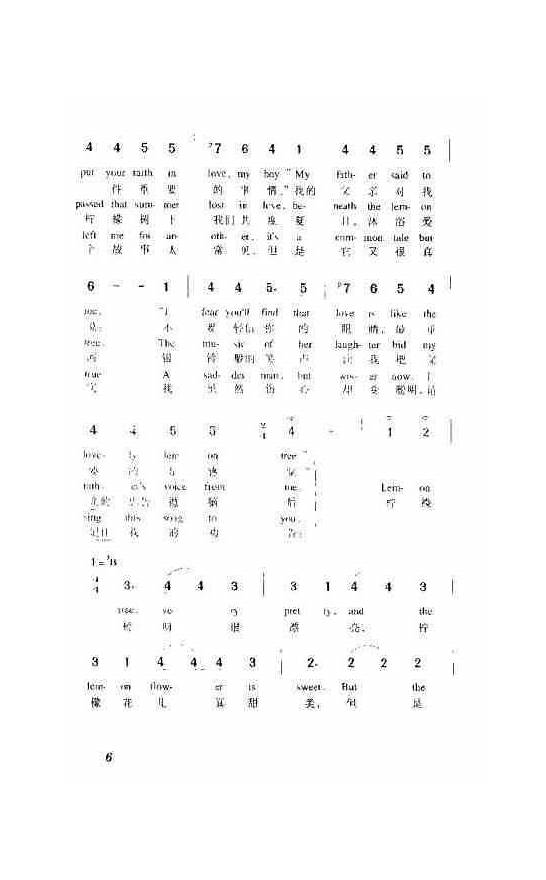 4 4 5 5 ♭7 6 4 1 4 4 5 5
put your faith in love, my boy" My fath- er said to
件 重 要 的 事 情," 我的 父 亲 对 我
passed that sum- mer lost in love, be- neath the lem- on
柠 檬 树 下 我们 共 度 夏 日, 沐 浴 爱
left me for an- oth- er, it's a com- mon tale but
个 故 事 太 常 见, 但 是 它 又 很 真
6 - - 1 4 4 5. 5 ♭7 6 5 4
me, "I fear you'll find that love is like the
说: 不 要 轻信 你 的 眼 睛,
tree. The mu- sic of her laugh- ter hid my
河 银 铃 般的 笑 声 让 我 把
true A sad- der man, but wis- er now, I
实 我 虽 然 伤 心 却 变 聪明,
4 4 5 5 2/4 4 - 1 2
love- ly lem- on tree"
fath- er's voice from me. Lem- on
忠告 抛 脑 后 柠 檬
sing this song to you.
我 的 劝 告:
1=♭B
4/4 3. 4 4 3 3 1 4 4 3
tree, ve- ry pret- ty, and the
树 呀 很 漂 亮, 柠
3 1 4 4 4 3 2. 2 2 2
lem- on flow- er is sweet. But the
檬 花 儿 真 甜 美, 但 是
6